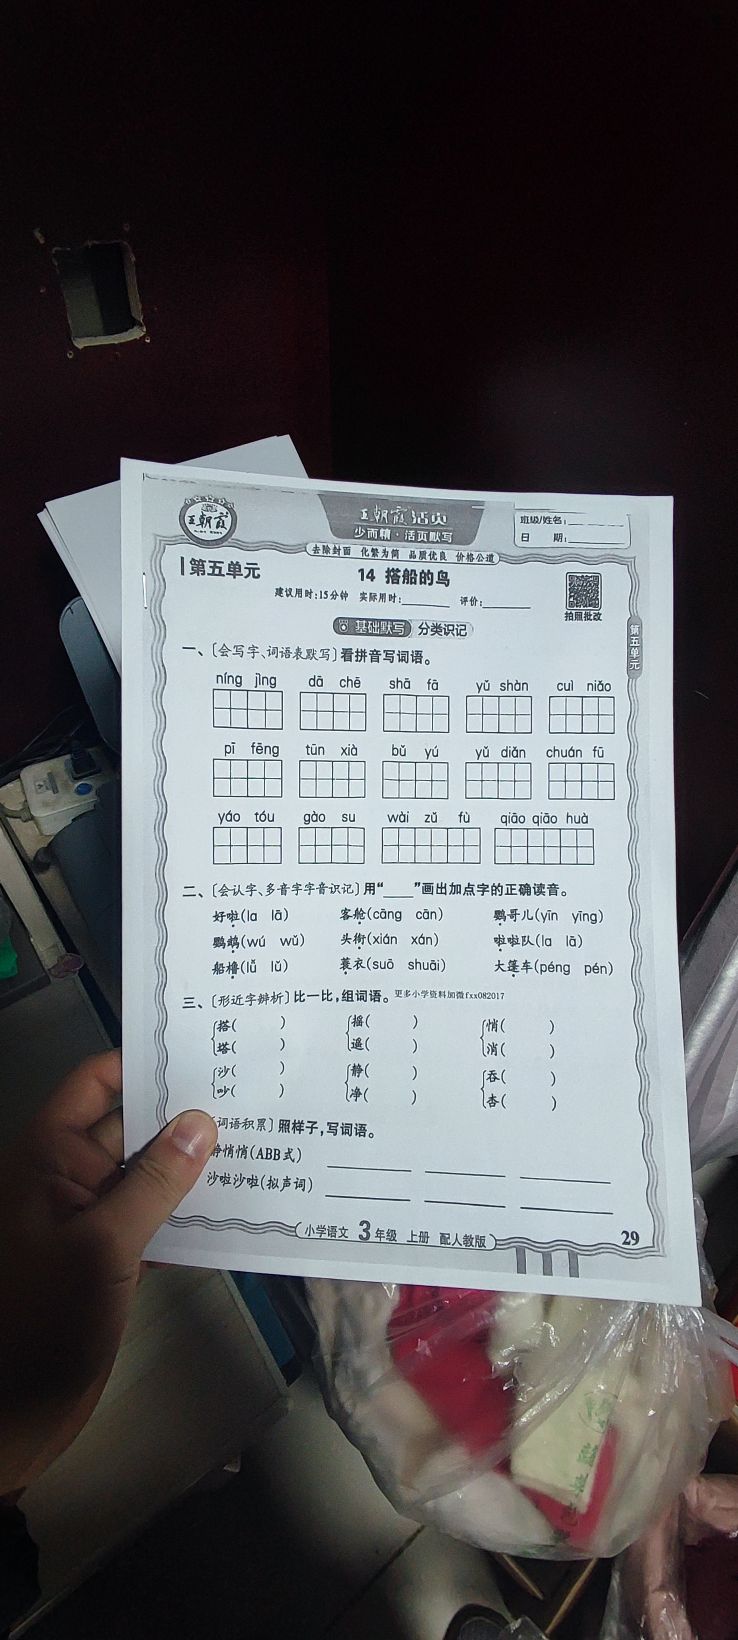 王朝霞
王朝霞活页
少而精·活页默写
班级/姓名:
日 期:
去除封面 化繁为简 品质优良 价格公道
第五单元
14 搭船的鸟
建议用时:15分钟 实际用时: 评价:
拍照批改
第五单元
基础默写 分类识记
一、〔会写字、词语表默写〕看拼音写词语。
níng jìng dā chē shā fā yǔ shàn cuì niǎo
pī fēng tūn xià bǔ yú yǔ diǎn chuán fū
yáo tóu gào su wài zǔ fù qiāo qiāo huà
二、〔会认字、多音字字音识记〕用“____”画出加点字的正确读音。
好啦(la lā) 客舱(cāng cān) 鹦哥儿(yīn yīng)
鹦鹉(wú wǔ) 头衔(xián xán) 啦啦队(la lā)
船橹(lǚ lǔ) 蓑衣(suō shuāi) 大篷车(péng pén)
三、〔形近字辨析〕比一比,组词语。更多小学资料加微fxx082017
搭( ) 摇( ) 悄( )
塔( ) 遥( ) 消( )
沙( ) 静( ) 吞( )
吵( ) 净( ) 杏( )
词语积累〕照样子,写词语。
静悄悄(ABB式)
沙啦沙啦(拟声词)
小学语文 3年级 上册 配人教版
29